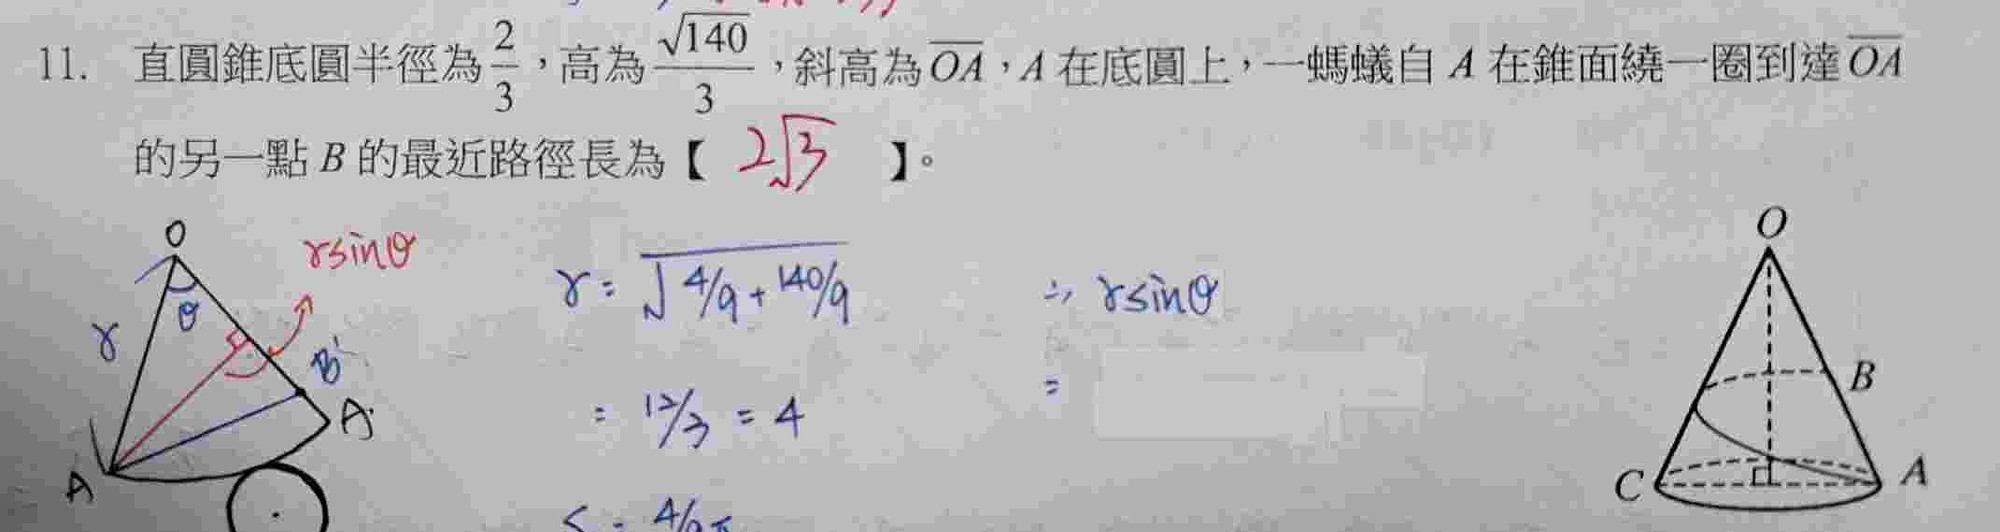 11. 直圓錐底圓半徑為 2/3，高為 √140/3，斜高為 OA，A 在底圓上，一螞蟻自 A 在錐面繞一圈到達 OA
的另一點 B 的最近路徑長為【 2√3 】。
O
rsinθ
θ
r
B'
A'
A
r = √(4/9 + 140/9)
= 12/3 = 4
∴ rsinθ
=
O
B
C
A